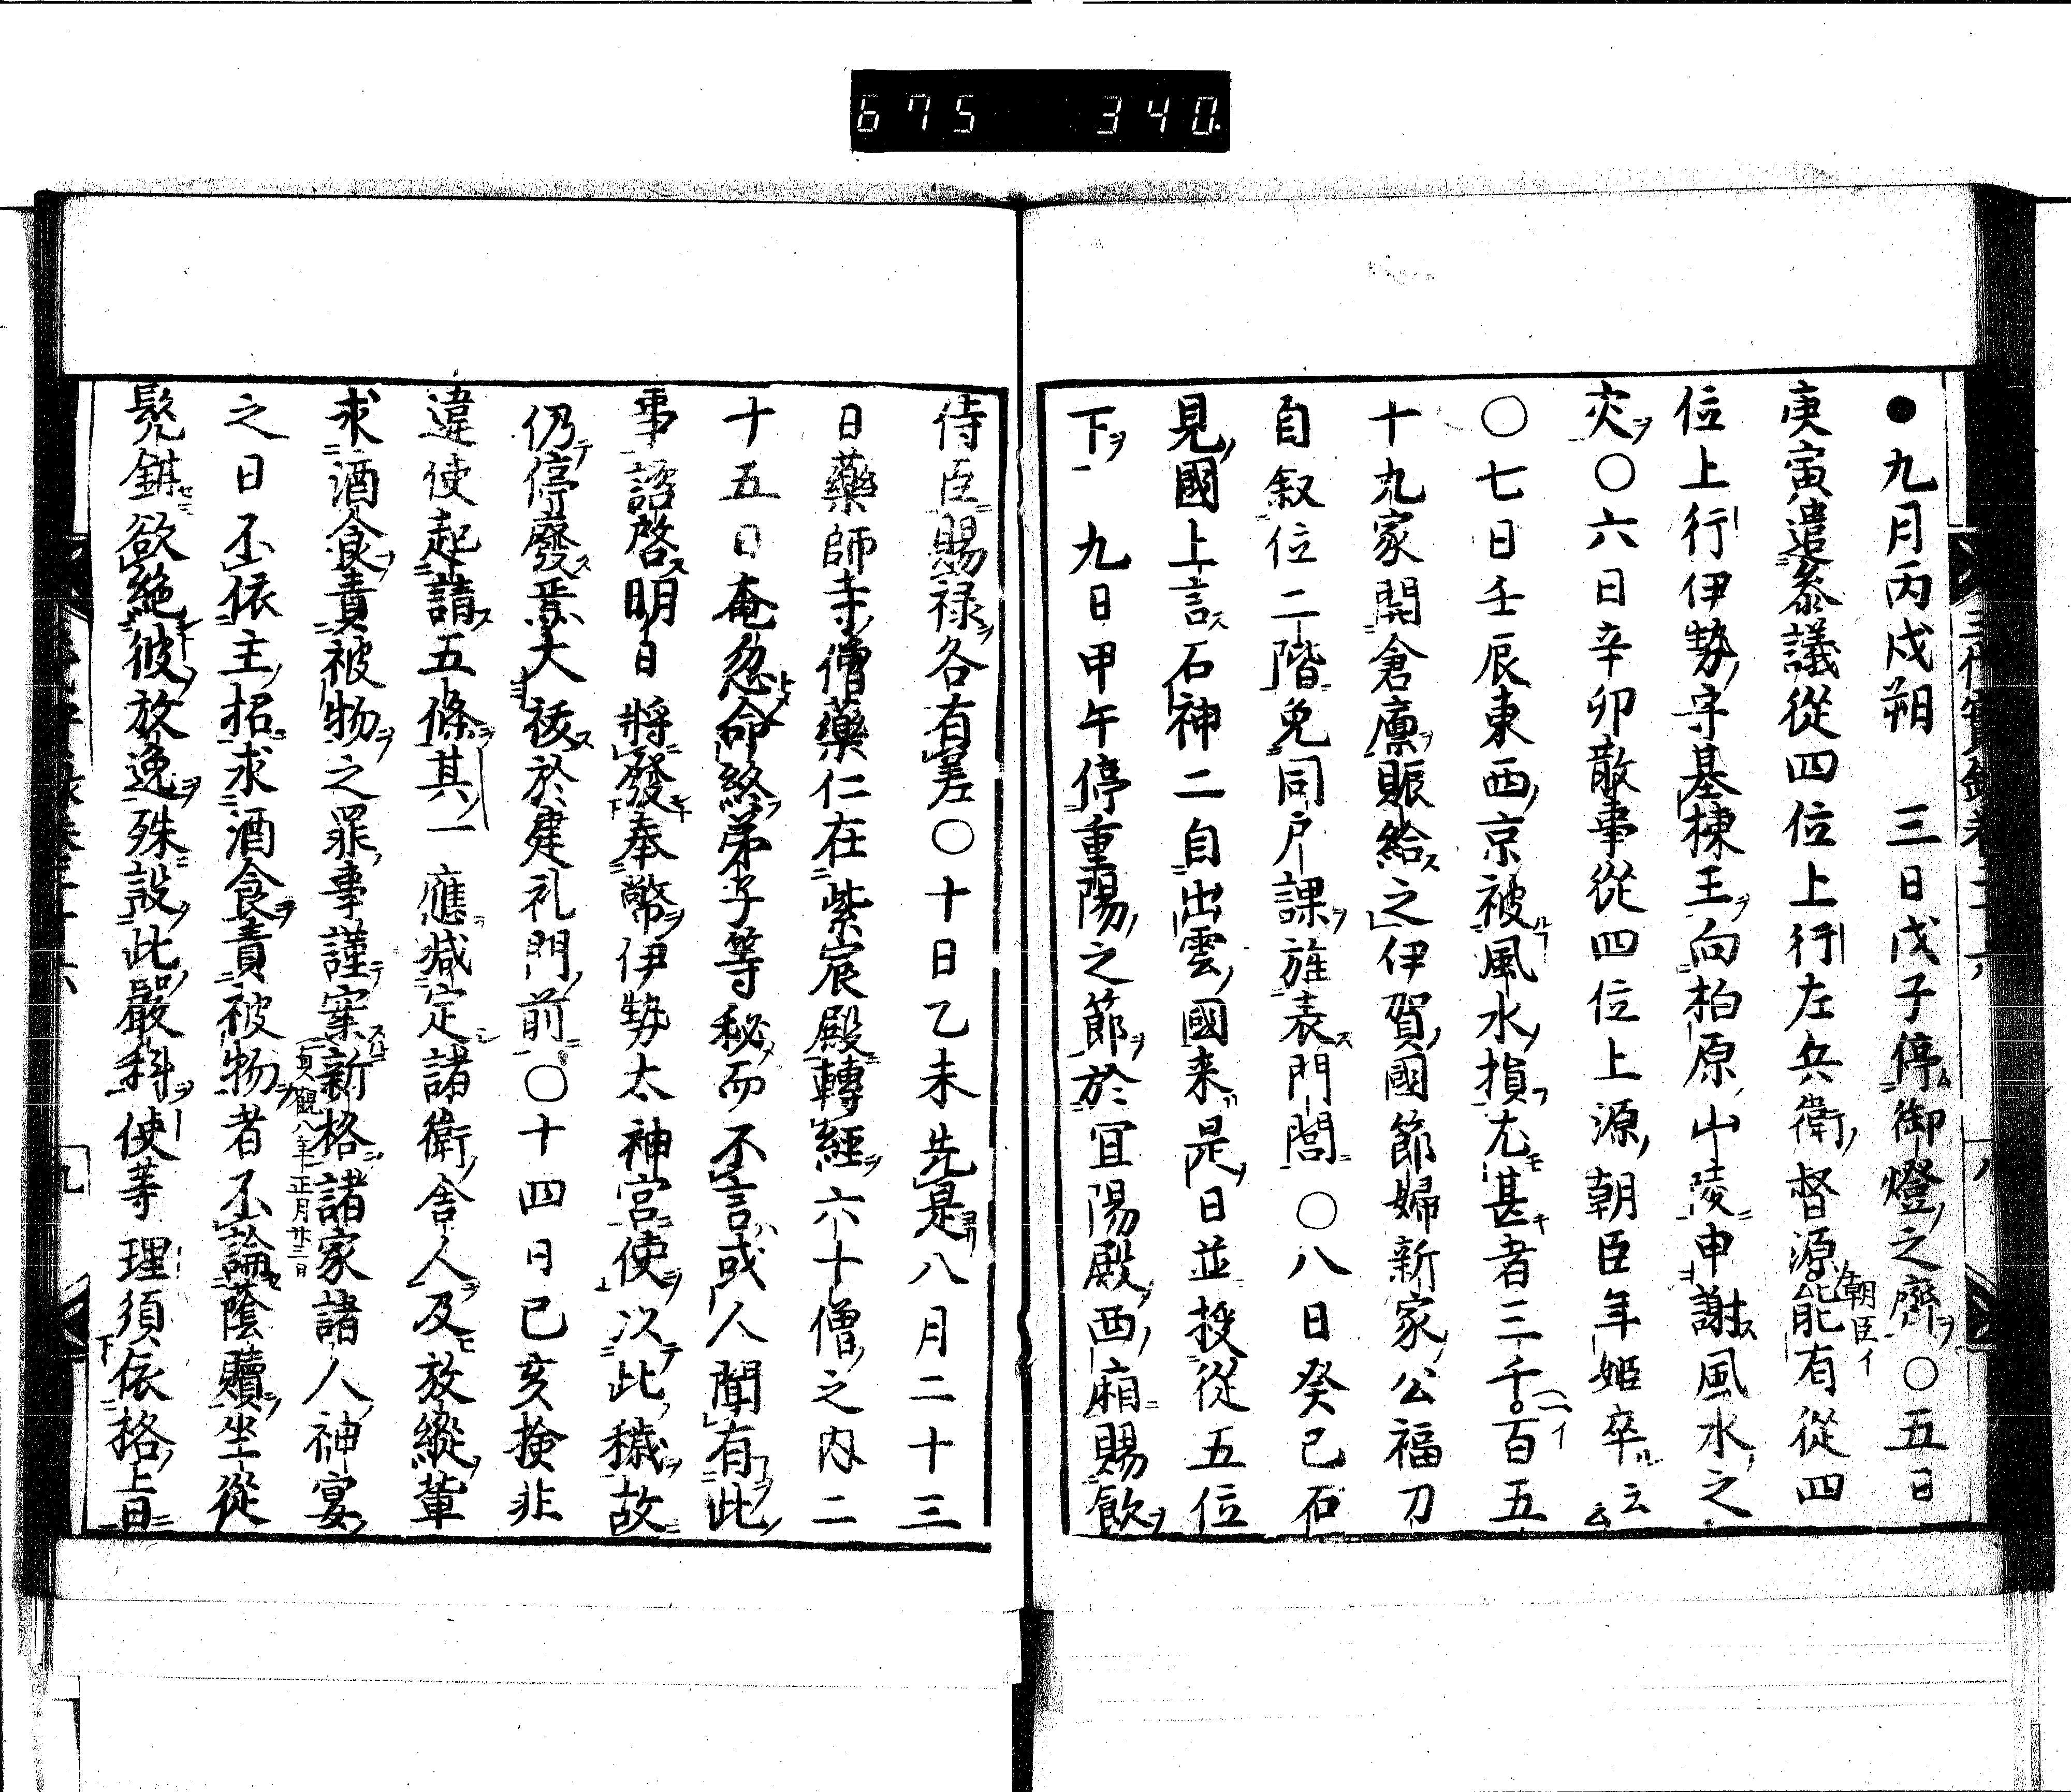 675 340.
●九月丙戌朔 三日戊子停御燈之齋○五日
庚寅遣叅議從四位上行左兵衛督源朝臣イ能有從四
位上行伊勢守基棟王向柏原山陵申謝風水之
灾○六日辛卯散事從四位上源朝臣年姫卒云云
○七日壬辰東西京被風水損尤甚者三千二イ百五
十九家開倉廩賑給之伊賀國節婦新家公福刀
自叙位二階免同戸課旌表門閭○八日癸巳石
見國上言石神二自出雲國来是日並授從五位
下 九日甲午停重陽之節於冝陽殿西廂賜飲
侍臣賜禄各有差○十日乙未先是八月二十三
日藥師寺僧藥仁在紫宸殿轉經六十僧之内二
十五日奄忽命終弟子等秘而不言或人聞有此
事諮啓明日將發奉幣伊勢太神宮使以此穢故
仍停廢焉大祓於建礼門前○十四日己亥㨂非
違使起請五條其一應減定諸衛舎人及放縦輩
求酒食責被物之罪事謹案新格貞觀八年正月廿三日諸家諸人神宴
之日不依主招求酒食責被物者不論蔭贖坐從
髠鉗欲絶彼放逸殊設此嚴科使等理須依格上日